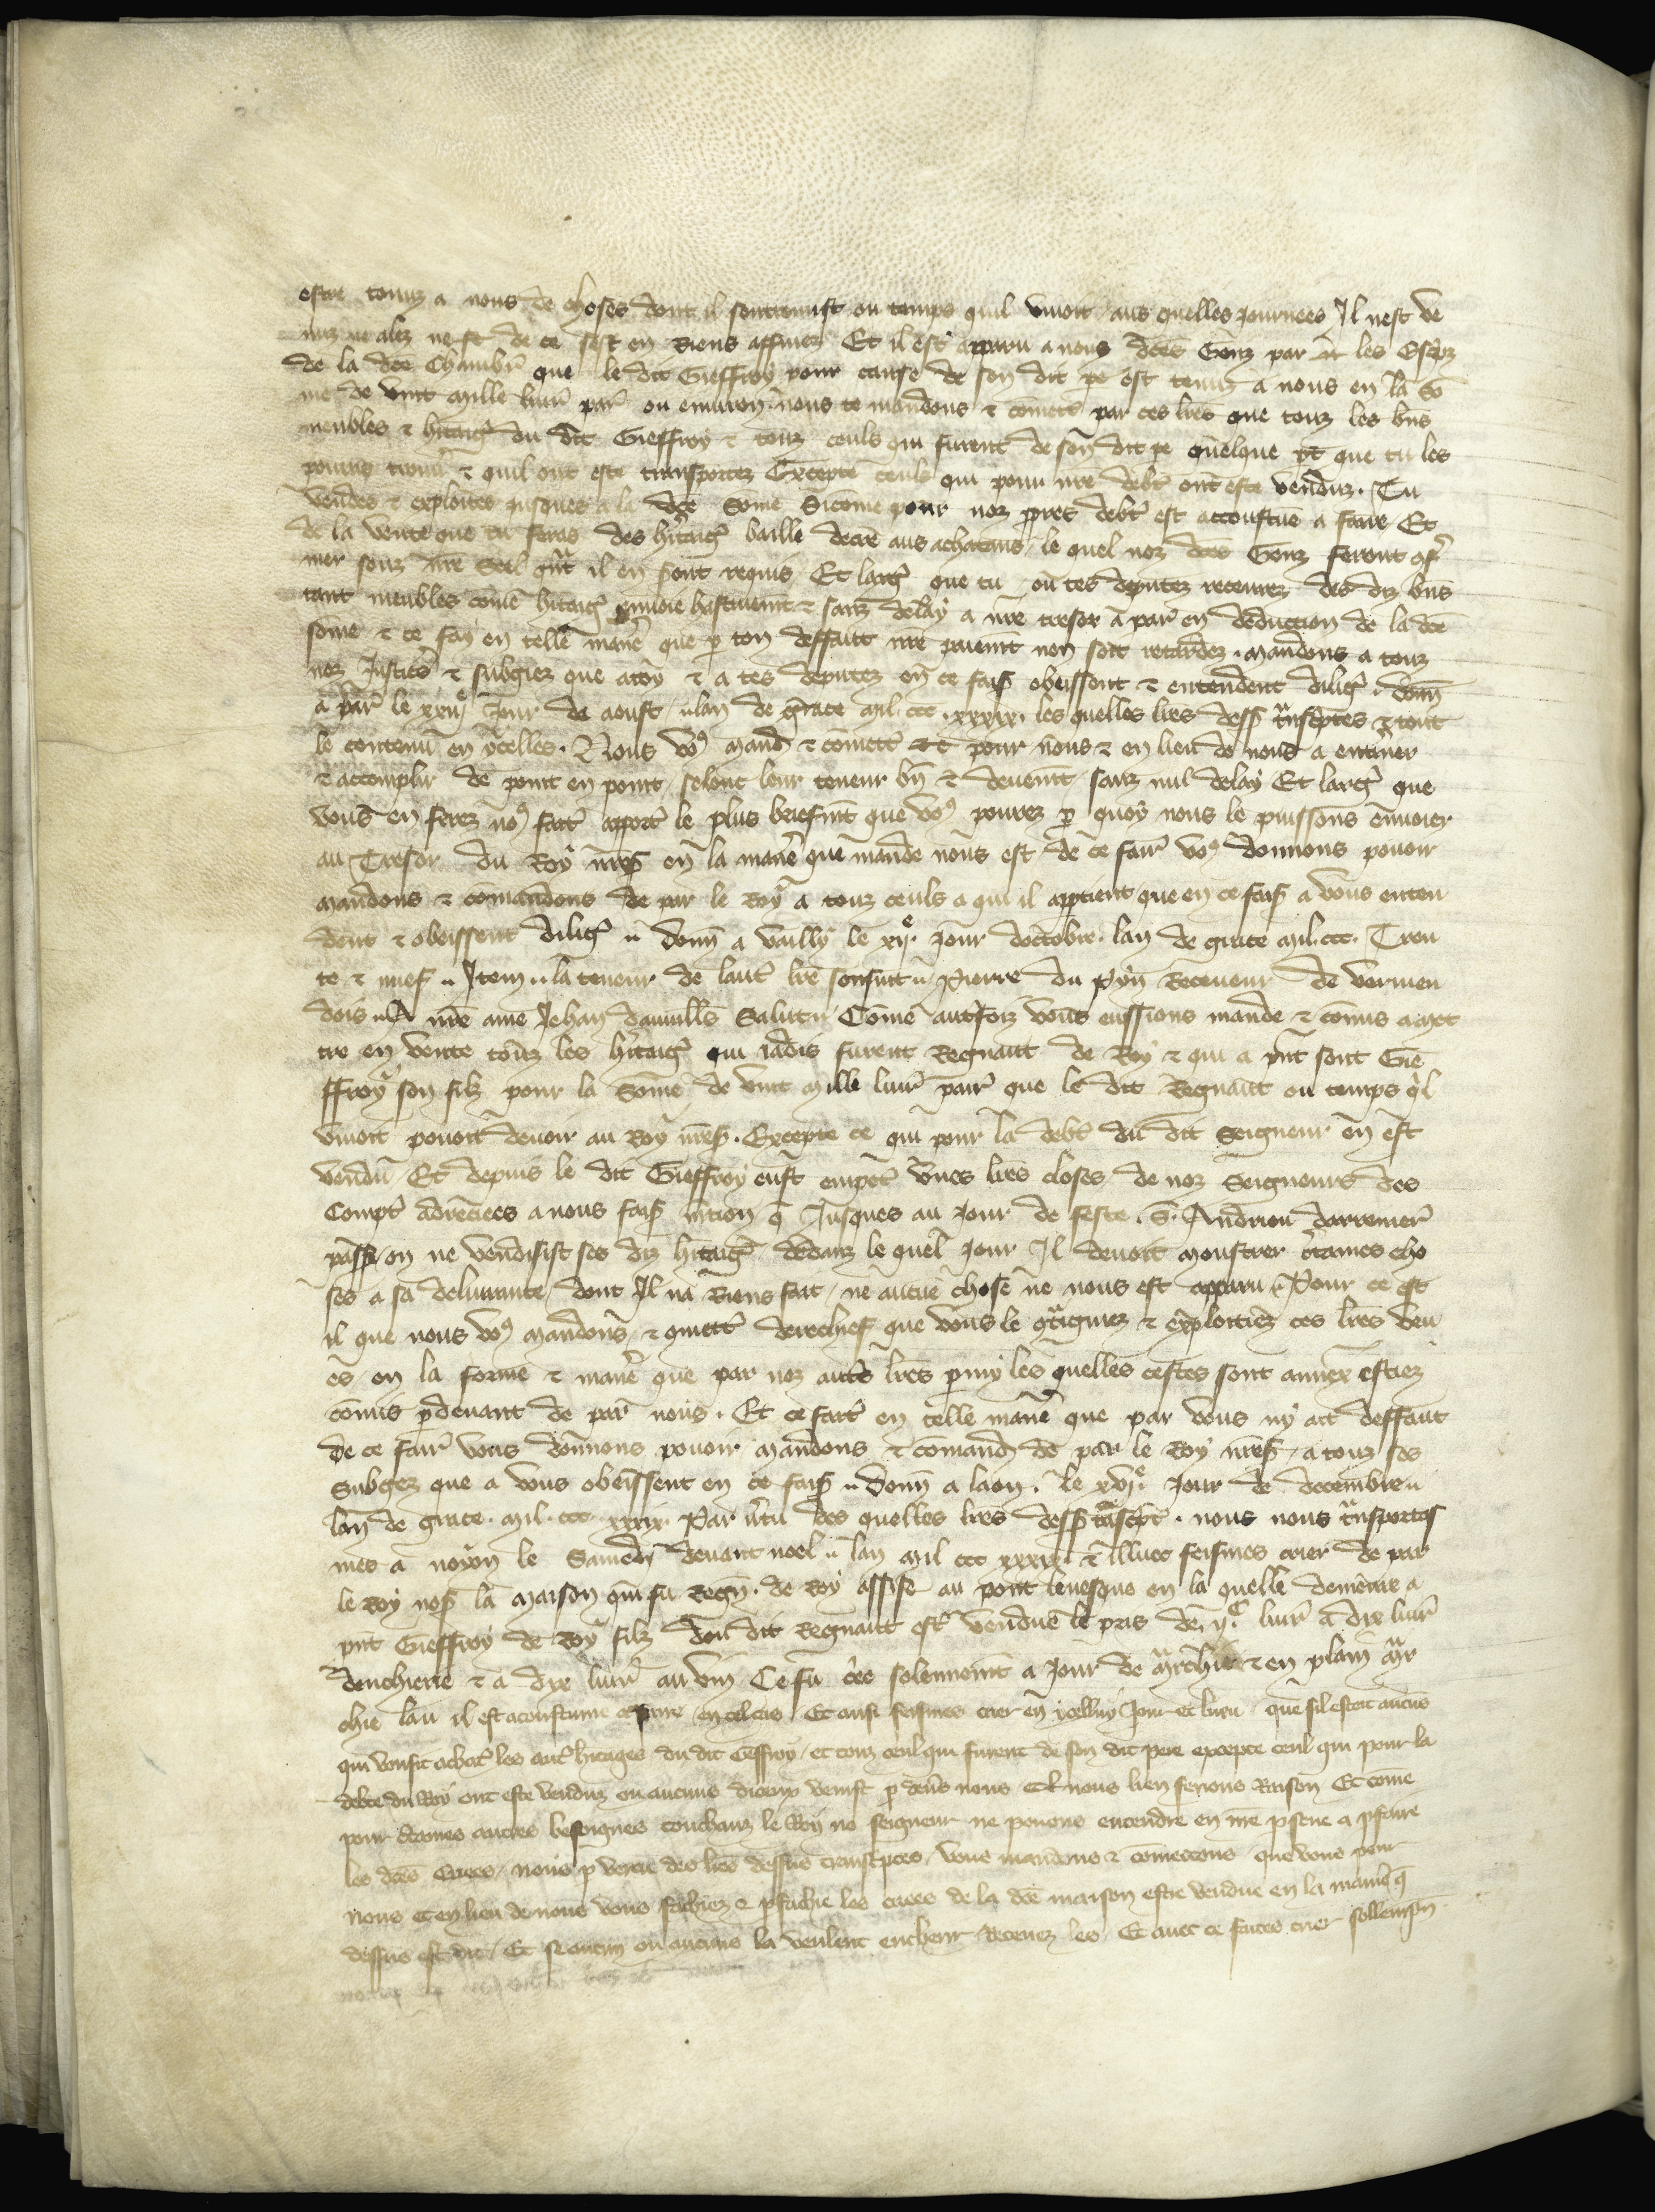 estre tenuz a nous de choses dont il sentremist ou temps quil vivoit aus quelles journees Il nest ve
nuz ne alez ne ft de ce sest en Riens affinez Et il est apparu a nous dces Genz par les Escpz
de la dce Chambr que le dit Gieffroy pour cause de son dit pe est tenuz a nous en la so
me de vint mille livr par ou environ nous te mandons & comets par ces lres que touz les bns
meubles & hitaig du dit Gieffroy & touz ceuls qui furent de son dit pe quelque pt que tu les
pourras trouv & quil ont este transportez Excepte ceuls qui pour nre debt ont este venduz. Tu
vendes & exploites jusques a la dce some Sicome pour noz ppres debt est acoustue a faire Et
de la vente que tu feras des hitaig baille decre aus achateurs le quel noz dces Genz feront ofr
mer souz nre Seel qnt il en sont requis Et larg que tu ou tes deputez recevrez des diz bns
tant meubles come hitaig envoie hastivemt & sanz delay a nre tresor a par en deduction de la dce
some & ce fay en telle manie que p ton deffaut nre paiemt non soit retardez. mandons a touz
noz Justic & subgiez que a toy & a tes deputez en ce fais obeissent & entendent dilig donn
a par le xxiije Jour de aoust lan de grace mil ccc xxxix. les quelles lres dess tnscptes & tout
le contenu en ycelles. Nous vo mand & comett pour nous & en lieu de nous a entiner
& accomplir de point en point selonc leur teneur bn & deuemt sanz nul delay Et larg que
vous en ferez no fait apport le plus briefmt que vo pourez p quoy nous le puissons envoier
au Tresor du Roy nres en la manie que mande nous est de ce fair vo donnons povoir
mandons & comandons de par le Roy a touz ceuls a qui il apptient que en ce fais a vous enten
dent & obeissent dilig donn a vailly le xije. jour doctobre. lan de grace mil ccc. Tren
te & nuef Item la teneur de laut lre sensuit Pierre du Pyn Receveur de vermen
dois A nre ame Jehan davaulls Salut Come autfoiz vous eussions mande & comis a met
tre en vente touz les hitaig qui jadis furent Regnaut de Roy & qui a pnt sont Gie
ffroy son filz pour la some de vint mille livr pair que le dit Regnaut ou temps ql
vivoit povoit devoir au Roy nres. Excepte ce qui pour la debt du dit Seigneur en est
vendu Et depuis le dit Gieffroy eust empet unes lres closes de noz Seigneurs des
Compt adrecees a nous fais mtion q Jusques au Jour de feste S. Andrieu darrenier
passe on ne vendisist ses diz hitaig dedanz le quel jour Il devoit monstrer ctaines cho
ses a sa delivrance dont Il na Riens fait ne aucue chose ne nous est apparu Pour ce est
il que nous vo mandons & comett derechief que vous le ctraigniez & exploitiez ces lres veu
es en la forme & manie que par noz auts lres pmy les quelles cestes sont annex estiez
comis pdevant de par nous. Et ce fait en telle manie que par vous ny ait deffaut
de ce fair vous donnons povoir mandons & comand de par le Roy nres a touz ses
Subgez que a vous obeissent en ce fais donn a laon le xvje. Jour de decembre
lan de grace. mil. ccc. xxxix. Par vtu des quelles lres dess tnscpt. nous nous tnsportas
mes a noyon le Samedi devant noel lan mil ccc xxxix & illuec feismes crier de par
le Roy nos la maison qui fu Regn. de Roy assise au pont levesque en la quelle demeure a
pnt Gieffroy de Roy filz dou dit Regnaut est vendue le pris de ijc livr a dix livr
denchierie & a dix livr au vin Ce fu cre solennemt a jour de mrchie & en plain mr
chie lau il est acoustume a faire en tel cas Et ausi feismes crier en ycelluy Jour et lieu que sil estoit aucuns
qui vousist achat les aut hitages du dit Geffroy et touz ceul qui furent de son dit pere excepte ceul qui pour la
debte du Roy ont este venduz ou aucuns diceux venist p devs nous et nous lien ferions Raison Et come
pour ctaines autres besoignes touchanz le Roy no seigneur ne povons entendre en nre psone a pfaire
les dces Criees nous p vertu des lres dessus transcptes vous mandons & comettons que vous pour
nous et en lieu de nous vous fachiez & pfachiez les criees de la dce maison estre vendue en la manie q
dessus est dit Et se aucun ou aucuns la veulent encherir Recevez les Et avec ce faites crier sollempn